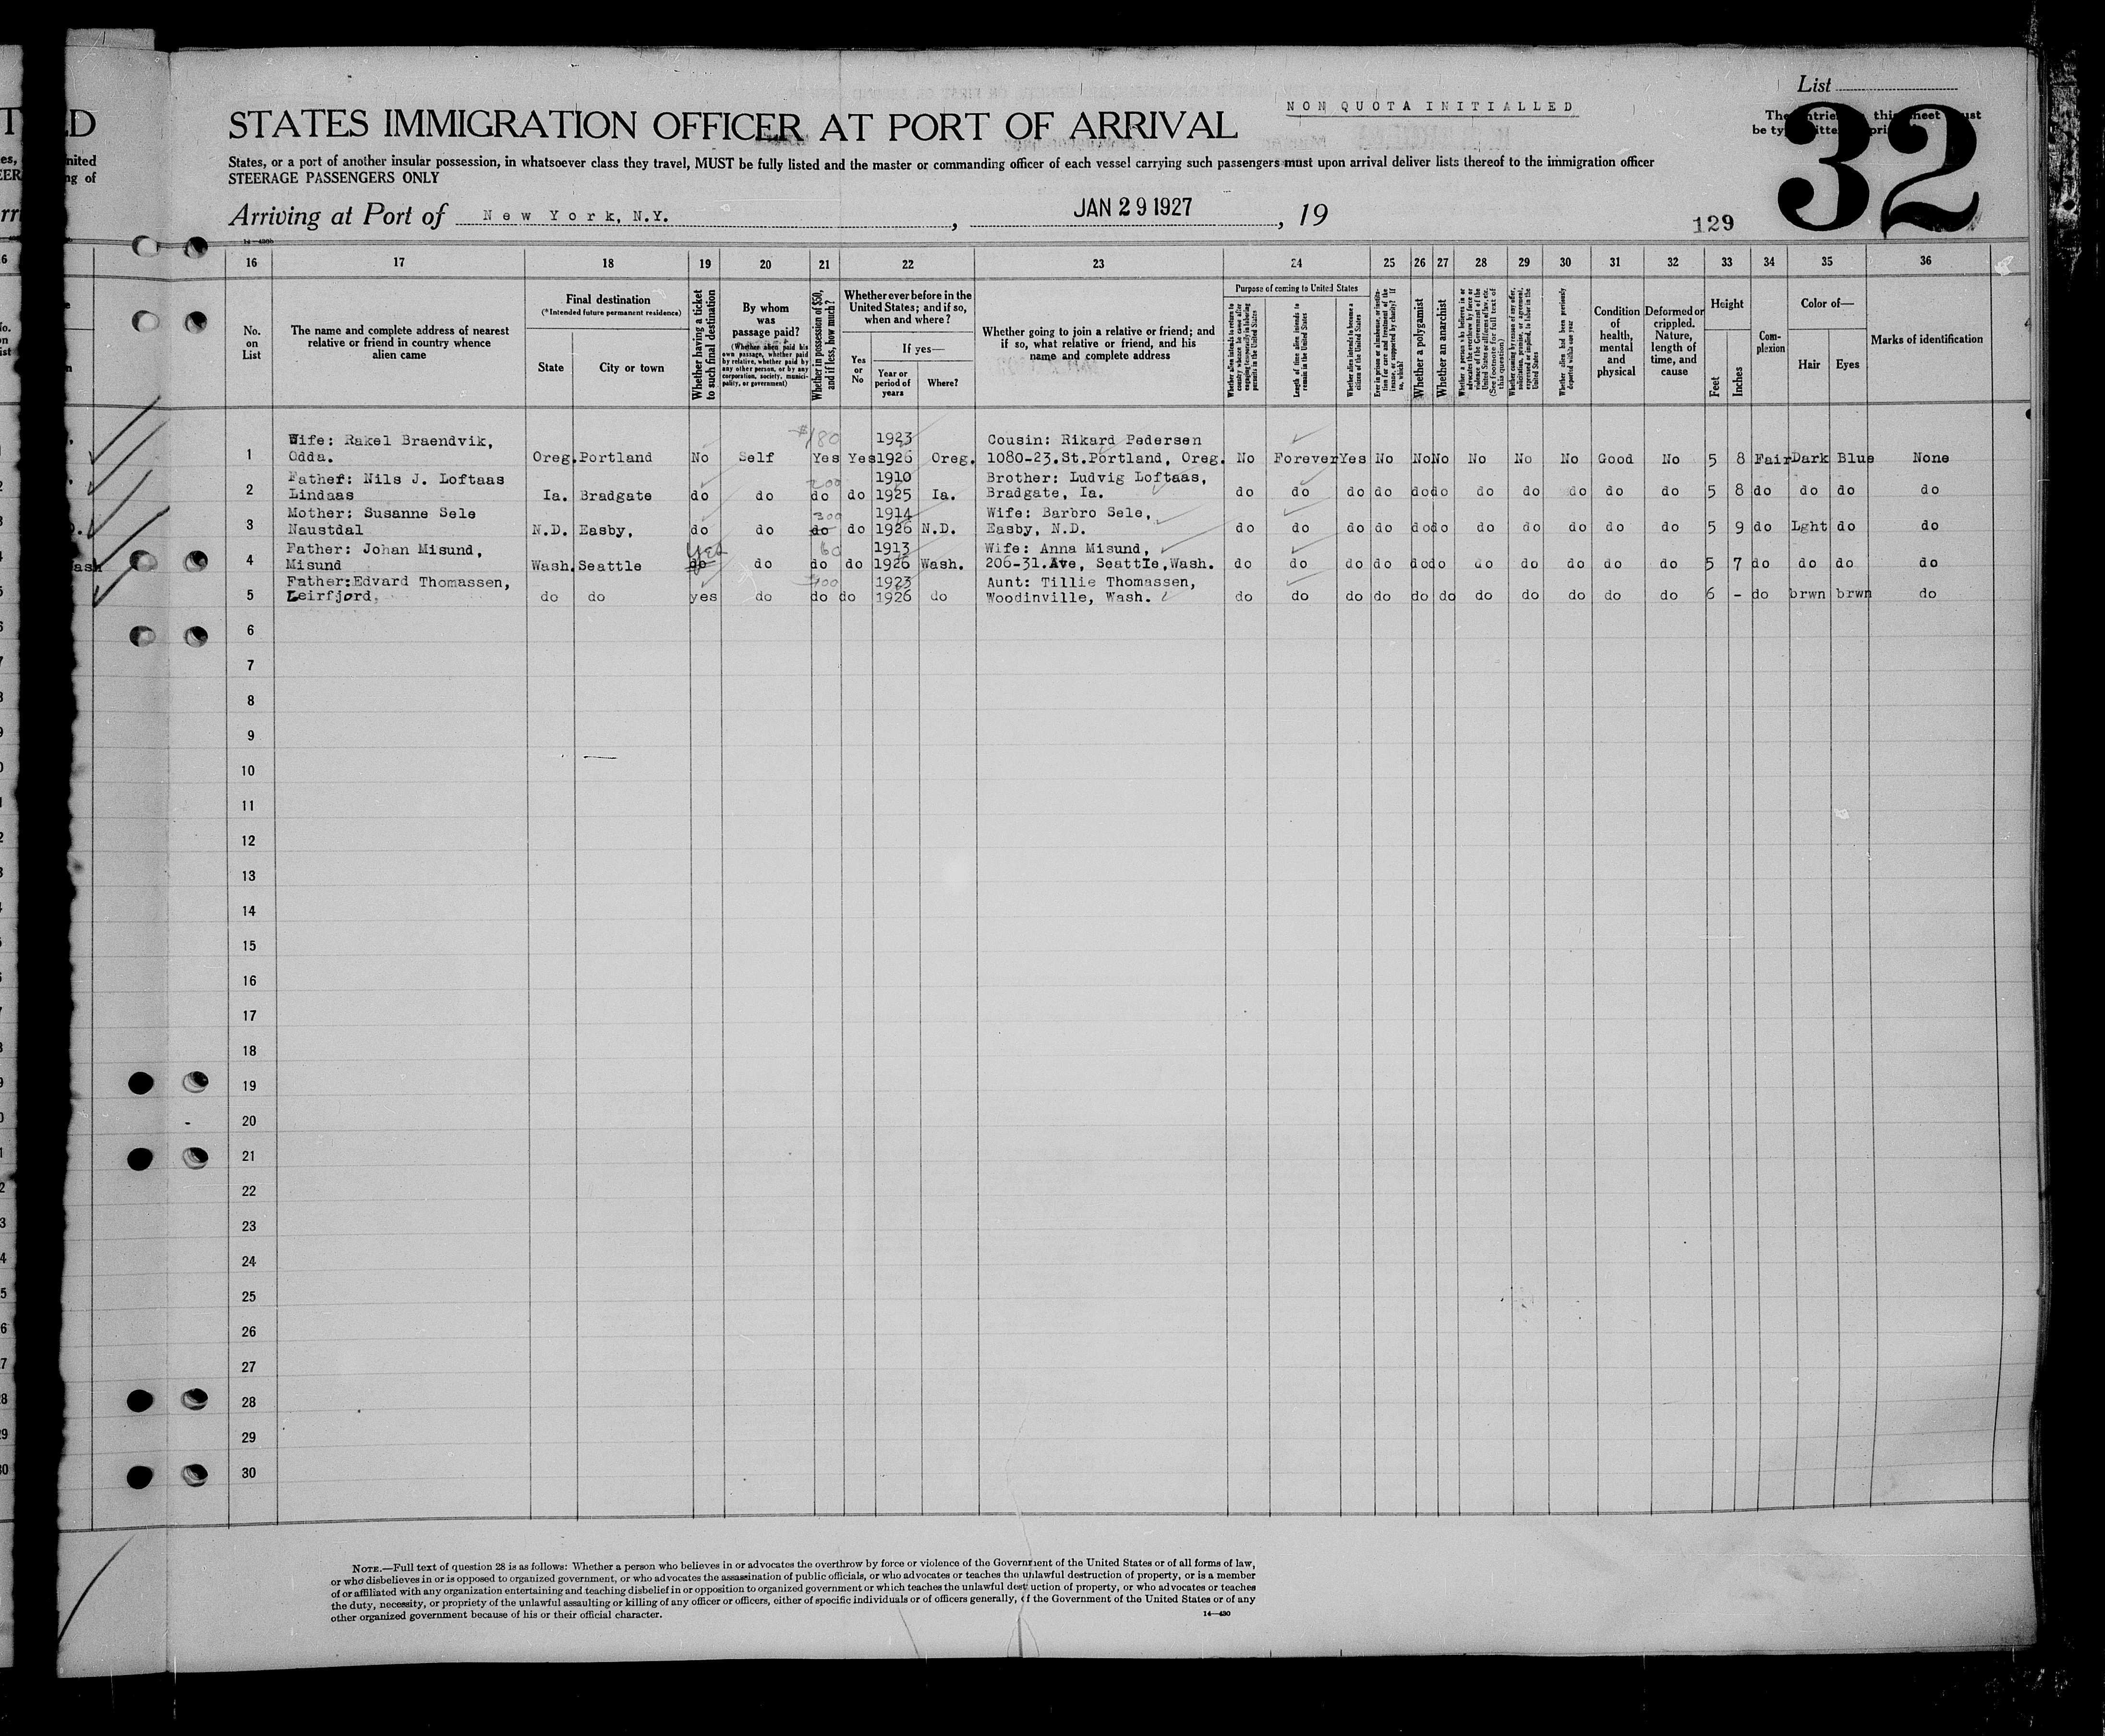 NON QUOTA INITIALLED
List
32
STATES IMMIGRATION OFFICER AT PORT OF ARRIVAL
States, or a port of another insular possession, in whatsoever class they travel, MUST be fully listed and the master or commanding officer of each vessel carrying such passengers must upon arrival deliver lists thereof to the immigration officer
STEERAGE PASSENGERS ONLY
Arriving at Port of New York, N.Y. , JAN 29 1927 , 19
129
16 17 18 19 20 21 22 23 24 25 26 27 28 29 30 31 32 33 34 35 36
No. on List
The name and complete address of nearest relative or friend in country whence alien came
Final destination
(*Intended future permanent residence)
State
City or town
Whether having a ticket to such final destination
By whom was passage paid?
(Whether alien paid his own passage, whether paid by relative, whether paid by any other person, or by any corporation, society, municipality, or government)
Whether in possession of $50, and if less, how much?
Whether ever before in the United States; and if so, when and where?
Yes or No
If yes—
Year or period of years
Where?
Whether going to join a relative or friend; and if so, what relative or friend, and his name and complete address
Purpose of coming to United States
Length of time alien intends to remain in the United States
Whether alien intends to become a citizen of the United States
Whether a polygamist
Whether an anarchist
Condition of health, mental and physical
Deformed or crippled. Nature, length of time, and cause
Height
Feet
Inches
Complexion
Color of—
Hair
Eyes
Marks of identification
Wife: Rakel Braendvik, $180 1923 Cousin: Rikard Pedersen
1 Odda. Oreg. Portland No Self Yes Yes 1926 Oreg. 1080-23.St.Portland, Oreg. No Forever Yes No No No No No No Good No 5 8 Fair Dark Blue None
Father: Nils J. Loftaas 200 1910 Brother: Ludvig Loftaas,
2 Lindaas Ia. Bradgate do do do do 1925 Ia. Bradgate, Ia. do do do do do do do do do do do 5 8 do do do do
Mother: Susanne Sele 300 1914 Wife: Barbro Sele,
3 Naustdal N.D. Easby, do do do do 1926 N.D. Easby, N.D. do do do do do do do do do do do 5 9 do Lght do do
Father: Johan Misund, yes 60 1913 Wife: Anna Misund,
4 Misund Wash. Seattle do do do do 1926 Wash. 206-31.Ave, Seattle,Wash. do do do do do do do do do do do 5 7 do do do do
Father:Edvard Thomassen, 1923 Aunt: Tillie Thomassen,
5 Leirfjord. do do yes do do do 1926 do Woodinville, Wash. do do do do do do do do do do do 6 - do brwn brwn do
6
7
8
9
10
11
12
13
14
15
16
17
18
19
20
21
22
23
24
25
26
27
28
29
30
NOTE.—Full text of question 28 is as follows: Whether a person who believes in or advocates the overthrow by force or violence of the Government of the United States or of all forms of law,
or who disbelieves in or is opposed to organized government, or who advocates the assassination of public officials, or who advocates or teaches the unlawful destruction of property, or is a member
of or affiliated with any organization entertaining and teaching disbelief in or opposition to organized government or which teaches the unlawful destruction of property, or who advocates or teaches
the duty, necessity, or propriety of the unlawful assaulting or killing of any officer or officers, either of specific individuals or of officers generally, of the Government of the United States or of any
other organized government because of his or their official character.
14—430